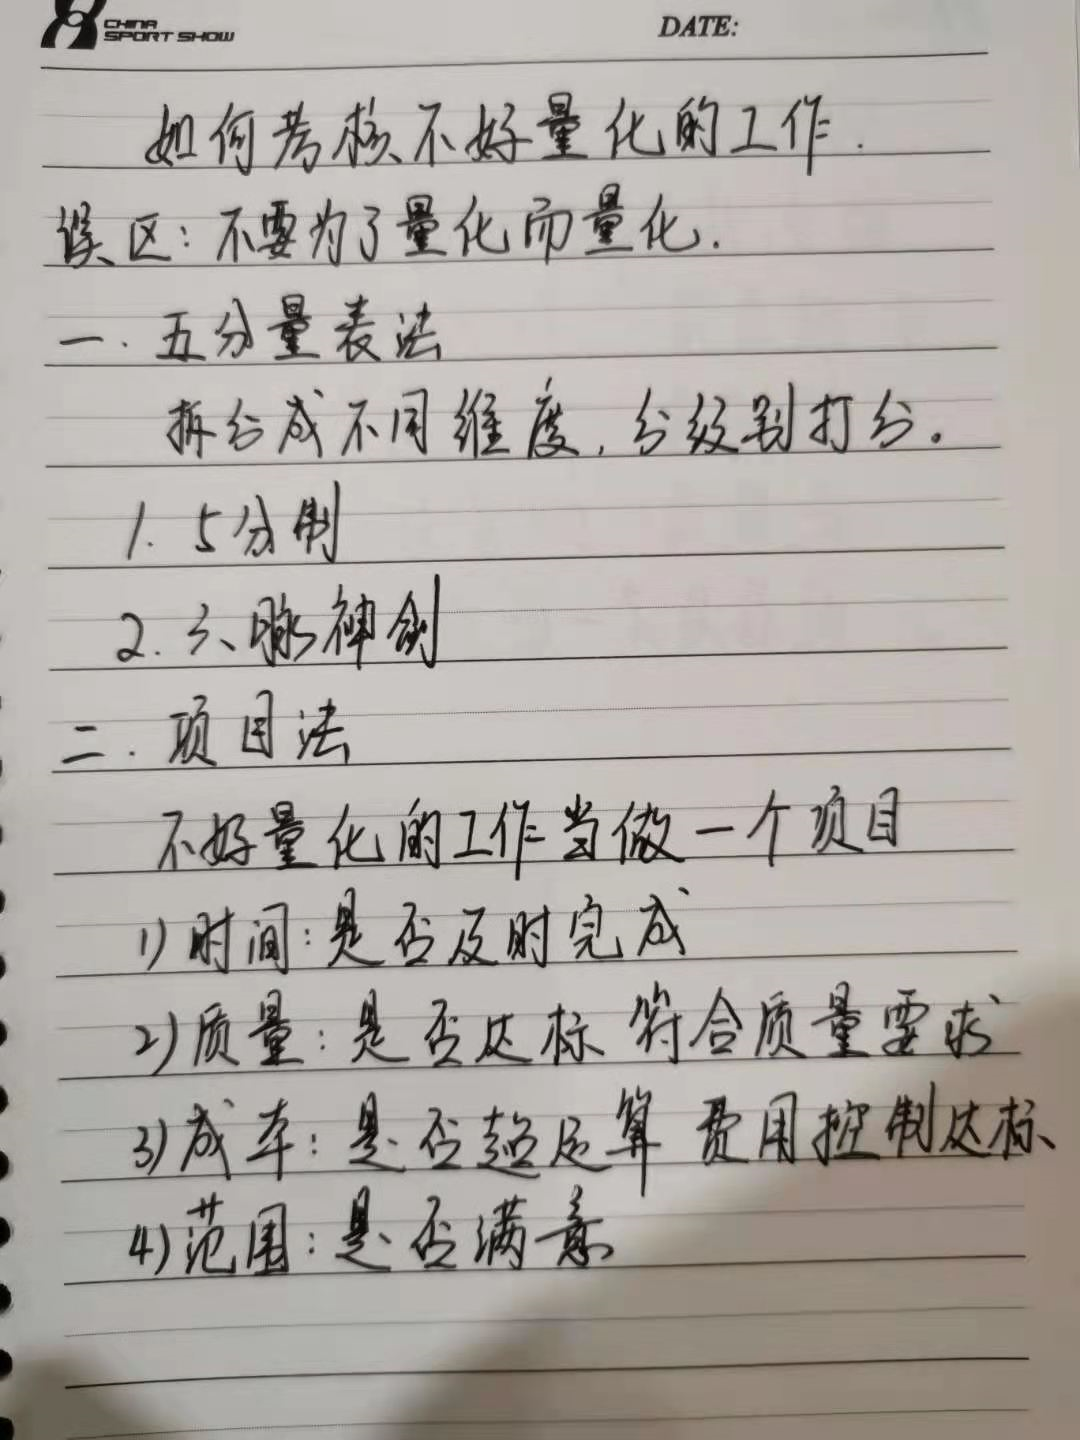 CHINA
SPORT SHOW
DATE:
如何考核不好量化的工作.
误区:不要为了量化而量化.
一.五分量表法
拆分成不同维度,分级别打分。
1. 5分制
2. 六脉神剑
二.项目法
不好量化的工作当做一个项目
1)时间:是否及时完成
2)质量:是否达标 符合质量要求
3)成本:是否超运算 费用控制达标
4)范围:是否满意